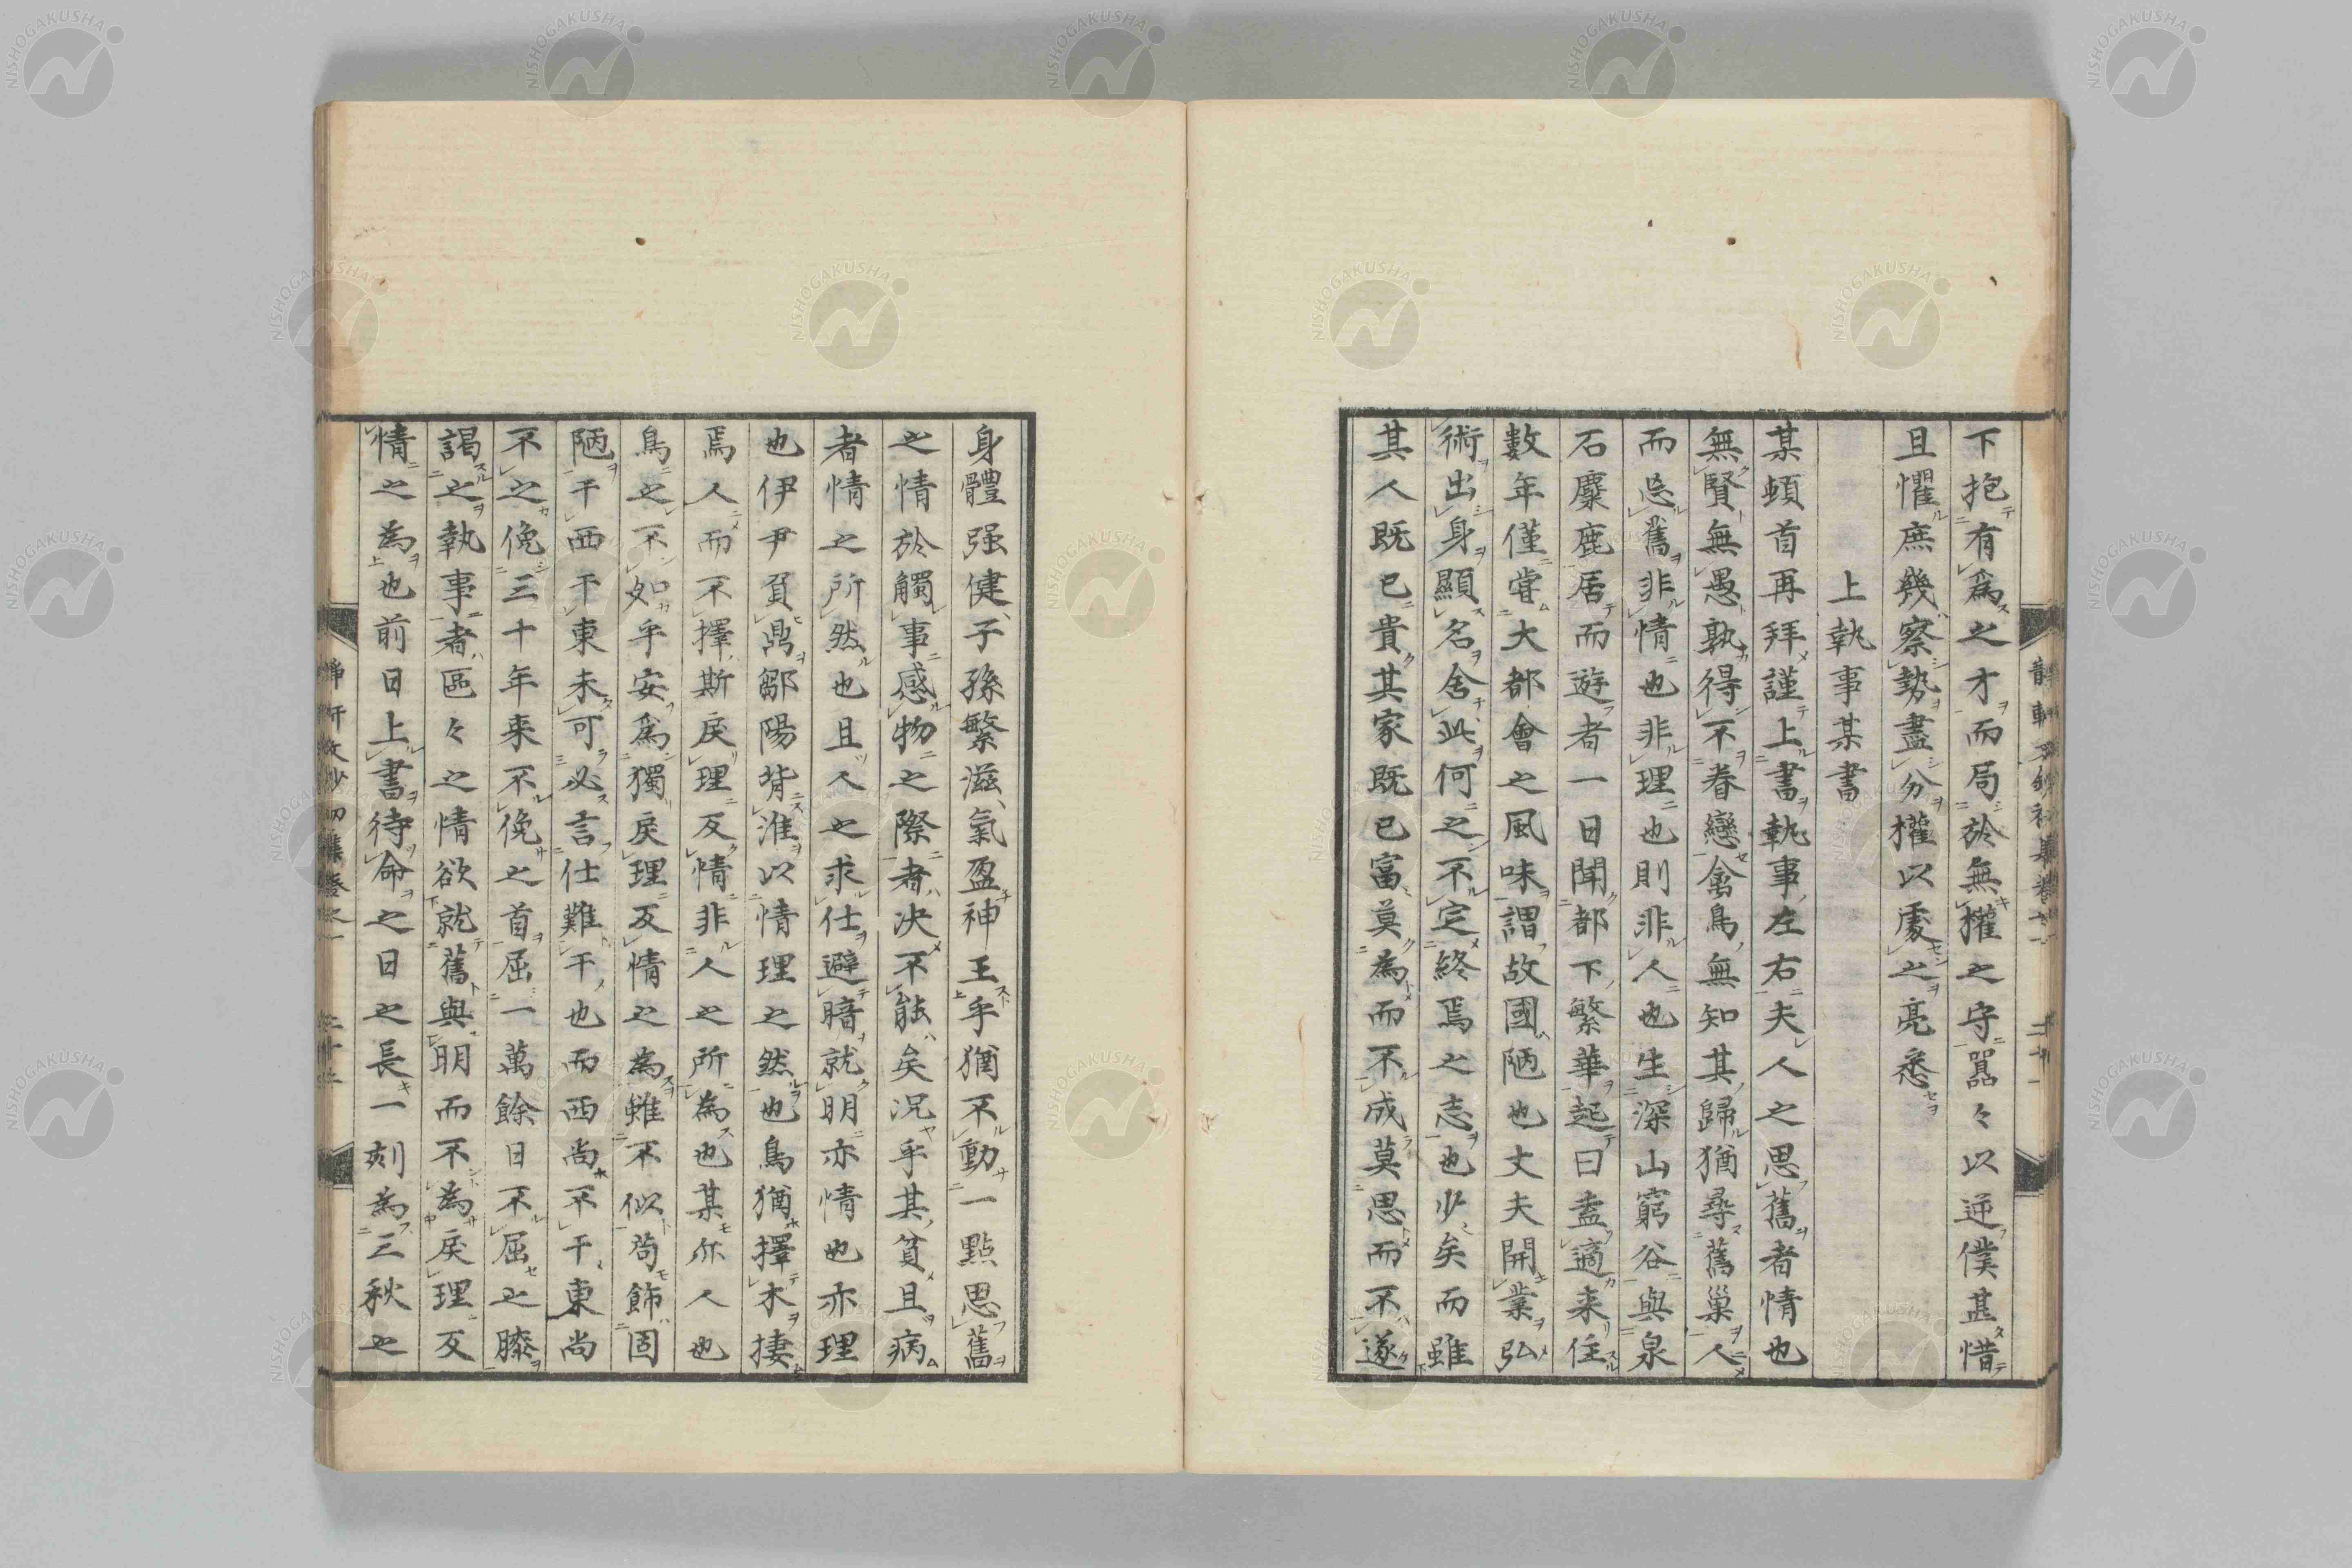 下抱有為之才而局於無權之守囂々以逆僕甚惜
且懼庶幾察勢盡分權以處之亮悉
上執事某書
某頓首再拜謹上書執事左右夫人之思舊者情也
無賢無愚孰得不眷戀禽鳥無知其歸猶尋舊巢人
而忘舊非情也非理也則非人也生深山窮谷與泉
石麋鹿居而遊者一日聞都下繁華起曰盍適来住
數年僅嘗大都會之風味謂故國陋也丈夫開業弘
術出身顯名舍此何之不定終焉之志也少矣而雖
其人既已貴其家既已富莫為而不成莫思而不遂
身體强健子孫繁滋氣盈神王乎猶不動一點思舊
之情於觸事感物之際者决不能矣况乎其貧且病
者情之所然也且人之求仕避暗就明亦情也亦理
也伊尹負鼎鄒陽背淮以情理之然也鳥猶擇木捿
焉人而不擇斯戾理反情非人之所為也某亦人也
鳥之不如乎安為獨戾理反情之為雖不似苟飾固
陋干西干東未可必言仕難干也而西尚不干東尚
不之俛三十年来不俛之首屈一萬餘日不屈之膝
謁之執事者區々之情欲就舊與明而不為戾理反
情之為也前日上書待命之日之長一刻為三秋之
NISHOGAKUSHA